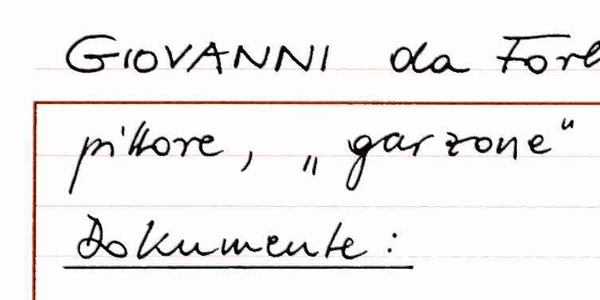 GIOVANNI da Forl
pittore, „garzone“
Dokumente: